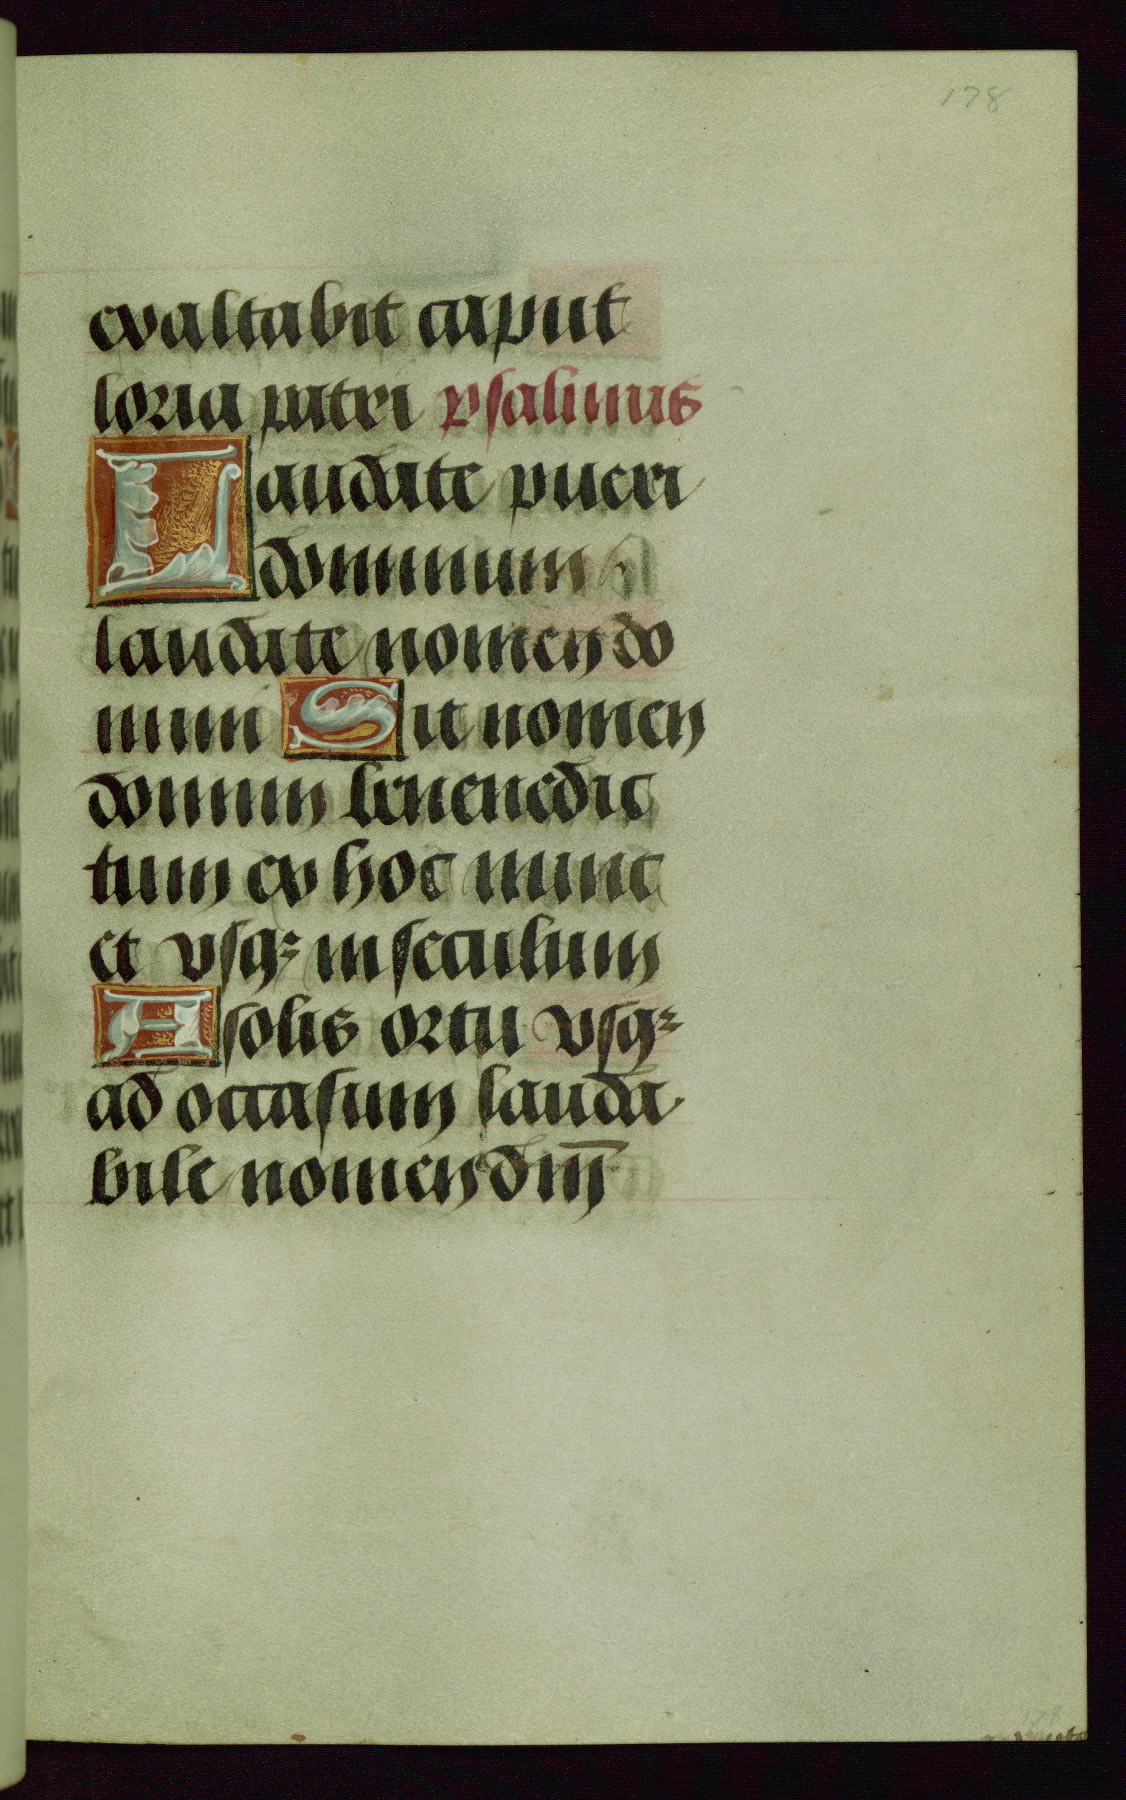 178
exaltabit caput
loria patri psalmus
Laudate pueri
dominum
laudate nomen do
mini Sit nomen
domini benenedic
tum ex hoc nunc
et vsq₃ in seculum
A solis ortu vsq₃
ad occasum lauda
bile nomen dni̅
178